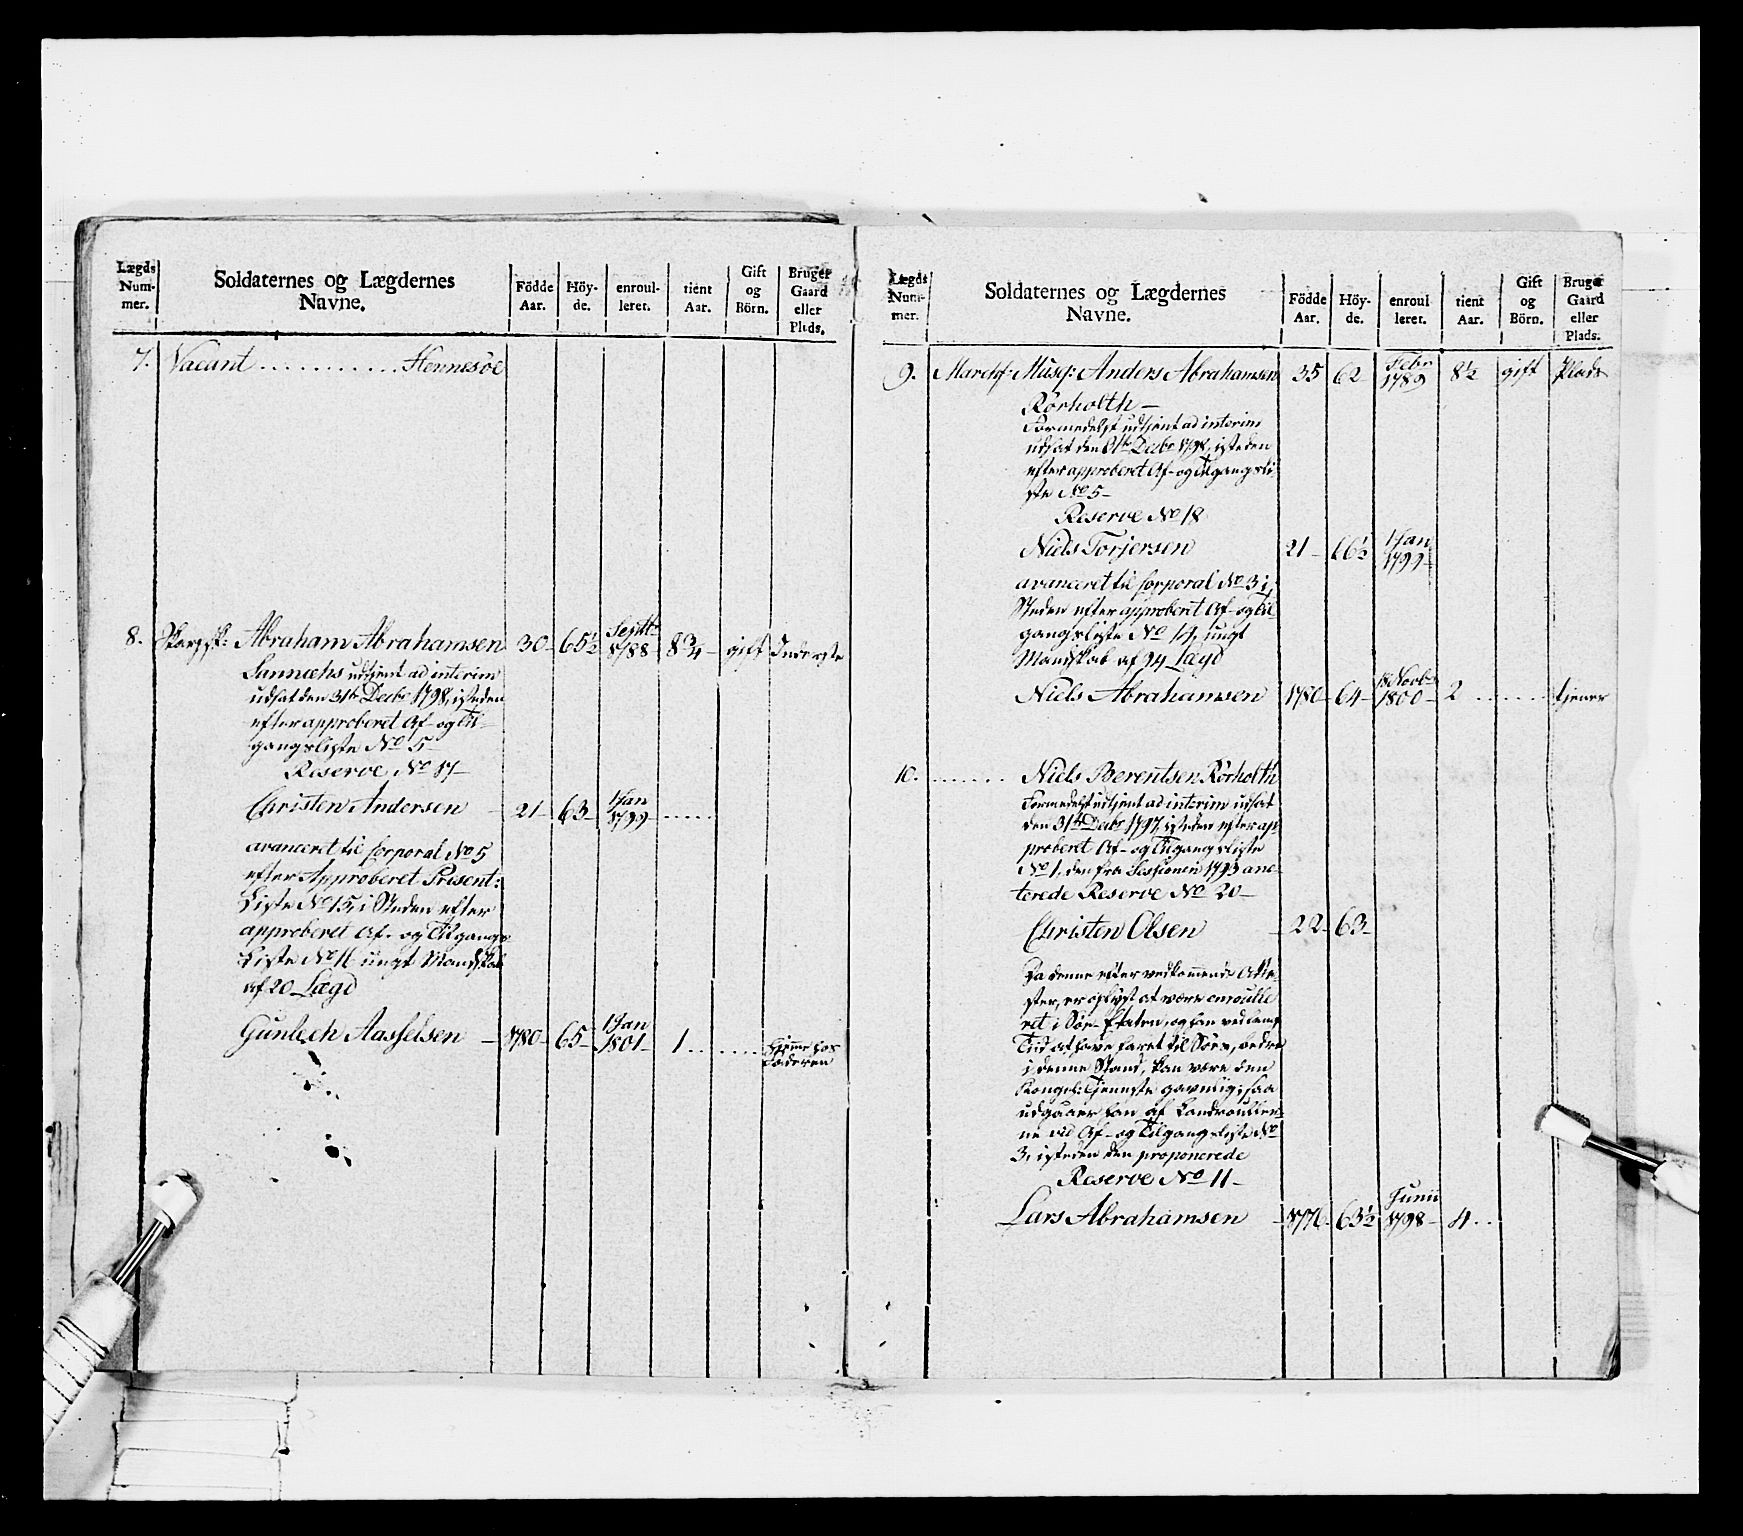 Lægds Num- mer. Soldaternes og Lægdernes Navne. Födde Aar. Höy- de. enroul- leret. tient Aar. Gift og Börn. Bruger Gaard eller Plads.
7. Vacant ............ Hennesöe
8. Skarpsk: Abraham Abrahamsen 30 - 65½ Septbr 1788 - 8¾ - gift Inderste
Sannæhs udtjent ad interim
udsat den 31te Decbr 1798, isteden
efter approberet Af- og Til-
gangsliste No 5 -
Reserve No 17 -
Christen Andersen - 21 - 63 - 1 Jan 1799 - .....
avanceret til Corporal No 5
efter Approberet Præsent:
Liste No 15, i Steden efter
approberet Af- og Tilgangs
Liste No 11 ungt Mandskab
af 20 Lægd
Gunlech Aasselsen - 1780 - 65 - 1 Jan 1801 - 1 ....... hjemme hos Faderen
Lægds Num- mer. Soldaternes og Lægdernes Navne. Födde Aar. Höy- de. enroul leret. tient Aar. Gift og Börn. Bruger Gaard eller Plads.
9. Marchf: Musq: Anders Abrahamsen 35 62 - Febr 1789 8½ gift Plads
Rörholth -
Formedelst udtjent ad interim
udsat den 31te Decbr 1797, isteden
efter approberet Af- og Tilgangsli-
ste No 5 -
Reserve No 18
Niels Torjersen 21 - 66½ 1 Jan 1799 -
avanceret til Corporal No 3 i
Steden efter approberet Af- og Til-
gangsliste No 14, ungt
Mandskab af 94 Lægd
Niels Abrahamsen 1780 - 64 - 18 Novbr 1800 - 2 ....... tjener
10. ....... Niels Berentsen Rörholth
Formedelst udtjent ad interim udsat
den 31te Decbr 1797, isteden efter ap-
proberet Af- og Tilgangsliste
No 1, den fra Sessionen 1793 ano-
terede Reserve No 20 -
Christen Olsen - 22 - 63 -
Da denne efter vedkommende Atte-
ster, er oplyst at være enroulle
ret i Söe-Etaten, og han ved lang
Tiid at have faret til Söes, bedre
i denne Stand, kan være den
Kongel: Tjeneste gavnlig; saa
udgaaer han af Landrouller-
ne ved Af- og Tilgangsliste No
3, isteden den proponerede
Reserve No 11 -
Lars Abrahamsen - 1776 - 63½ Junii 1798 - 4 ..